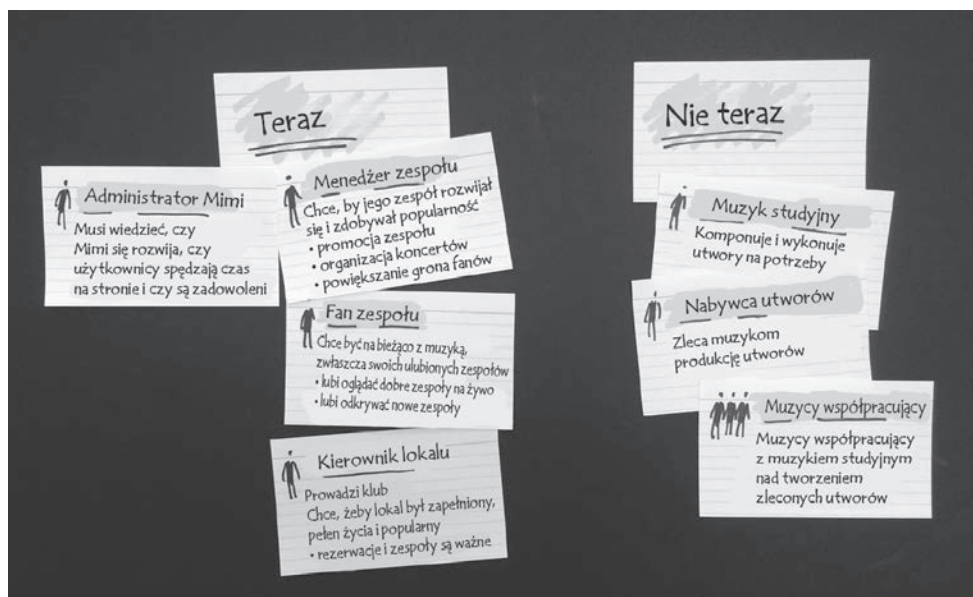 Teraz
Administrator Mimi
Musi wiedzieć, czy
Mimi się rozwija, czy
użytkownicy spędzają czas
na stronie i czy są zadowoleni
Menedżer zespołu
Chce, by jego zespół rozwijał
się i zdobywał popularność
• promocja zespołu
• organizacja koncertów
• powiększanie grona fanów
Fan zespołu
Chce być na bieżąco z muzyką,
zwłaszcza swoich ulubionych zespołów
• lubi oglądać dobre zespoły na żywo
• lubi odkrywać nowe zespoły
Kierownik lokalu
Prowadzi klub
Chce, żeby lokal był zapełniony,
pełen życia i popularny
• rezerwacje i zespoły są ważne
Nie teraz
Muzyk studyjny
Komponuje i wykonuje
utwory na potrzeby
Nabywca utworów
Zleca muzykom
produkcję utworów
Muzycy współpracujący
Muzycy współpracujący
z muzykiem studyjnym
nad tworzeniem
zleconych utworów